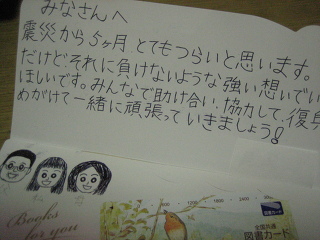 みなさんへ
震災から5ヶ月 とてもつらいと思います。
だけど、それに負けないような強い想いでい
ほしいです。みんなで助け合い、協力して、復興
めがけて一緒に頑張っていきましょう!
Books
for you
全国共通
図書カード
図書カード